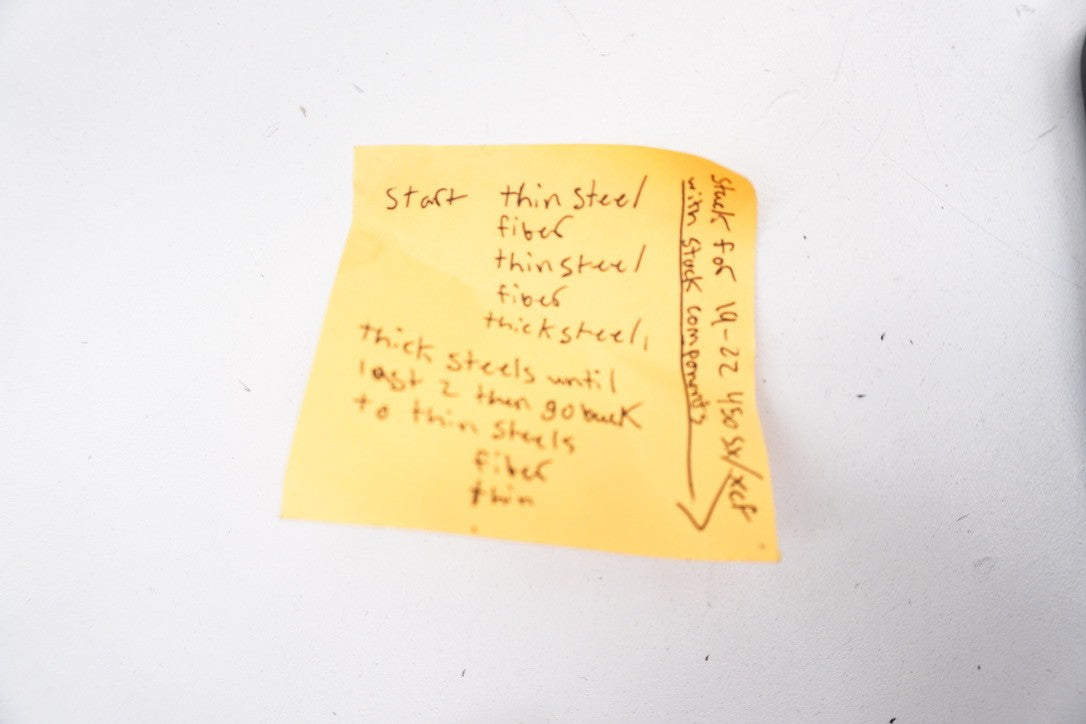 start thin steel
fiber
thin steel
fiber
thick steel,
thick steels until
last 2 then go back
to thin steels
fiber
thin
Stack for 19-22 450 sx/xcf
with stock components